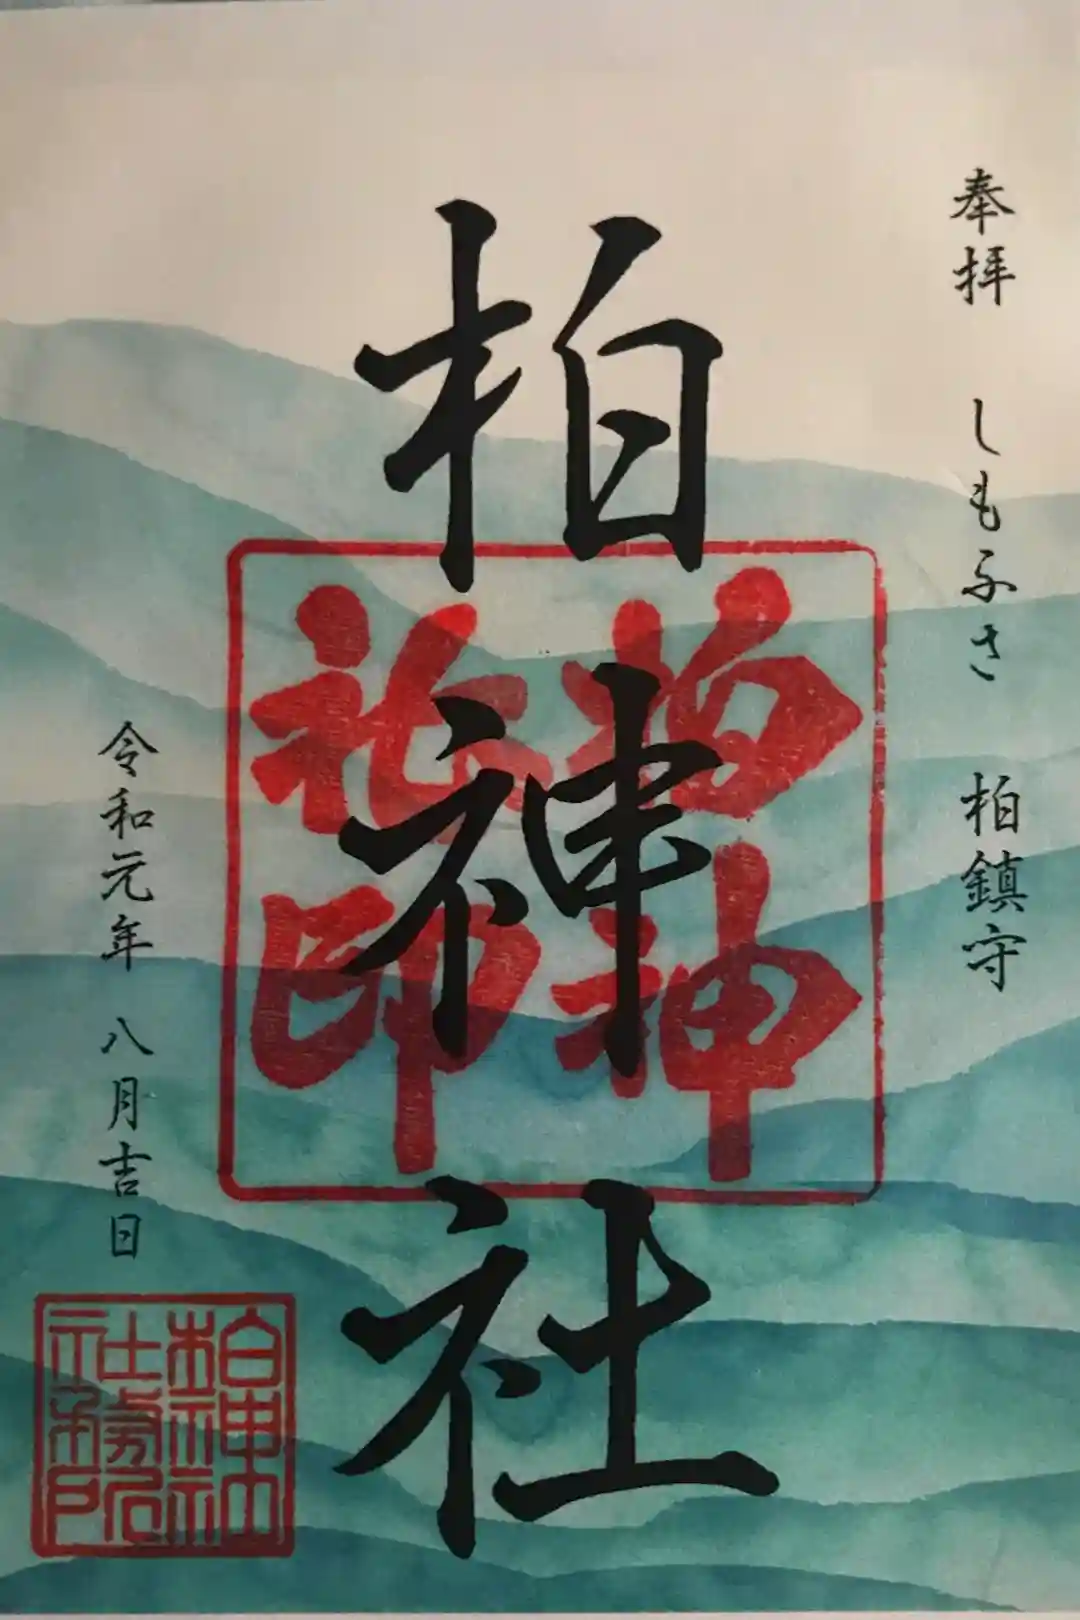 奉拝 しもふさ 柏鎮守
柏神社
柏神
社印
令和元年 八月吉日
柏神社
社務所